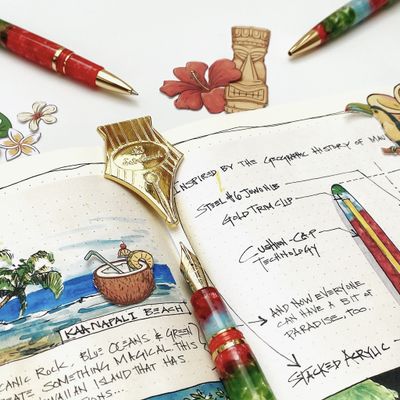 KAANAPALI BEACH
CANIC ROCK, BLUE OCEANS & GREEN
EATE SOMETHING MAGICAL. THIS
WAIIAN ISLAND THAT HAS
INSPIRED BY THE GEOGRAPHIC HISTORY OF MAU
STEEL #6 JOWO NIB
GOLD TRIM CLIP
CUSHION CAP
TECHNOLOGY
AND NOW EVERYONE
CAN HAVE A BIT OF
PARADISE, TOO.
STACKED ACRYLIC